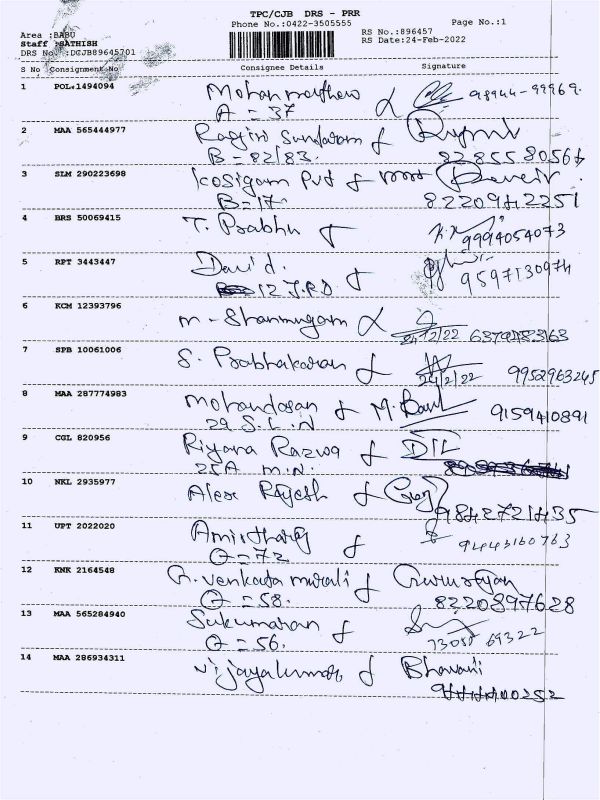 TPC/CJB DRS - PRR
Phone No.:0422-3505555
Page No.:1
Area :BABU
Staff :SATHISH
DRS No. :DCJB89645701
RS No.:896457
RS Date:24-Feb-2022
S No Consignment No Consignee Details Signature
1 POL 1494094 Mohan mathew 98944-99969.
A = 37
2 MAA 565444977 Ragini Sundaram
B = 82/83. 8285580564
3 SLM 290223698 Kosigam Pvt
B = 17. 8220942251
4 BRS 50069415 T. Prabhu 9994054073
5 RPT 3443447 David.
12 J.P.D 9597130974
6 KCM 12393796 m - Shanmugam
24/2/22
7 SPB 10061006 S. Prabhakaran
24/2/22 9952963245
8 MAA 287774983 Mohandasan 9159410891
29 S.L.N
9 CGL 820956 Riyana Razwa
25A M.N.
10 NKL 2935977 Alex Rajesh
9842721435
11 UPT 2022020 Amirtharaj 9443160763
O = 72
12 KNK 2164548 G. venkata murali
O = 58. 8220897628
13 MAA 565284940 Sukumaran
O = 56. 73058 69322
14 MAA 286934311 Vijayakumar Bhavani